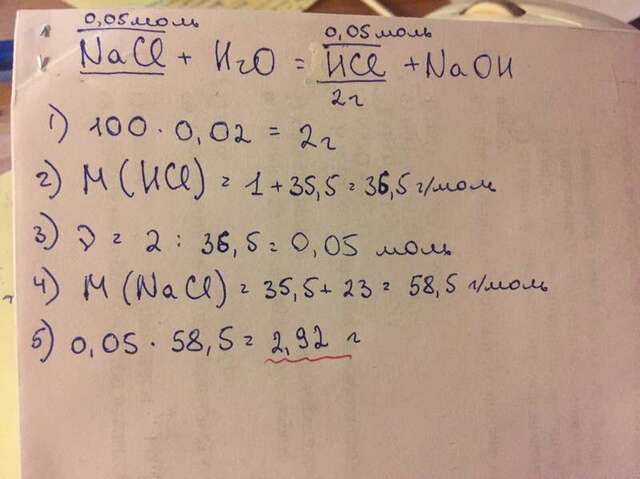 0,05 моль 0,05 моль
NaCl + H2O = HCl + NaOH
2г
1) 100 · 0,02 = 2г
2) M(HCl) = 1 + 35,5 = 36,5 г/моль
3) ν = 2 : 36,5 = 0,05 моль
4) M(NaCl) = 35,5 + 23 = 58,5 г/моль
5) 0,05 · 58,5 = 2,92 г